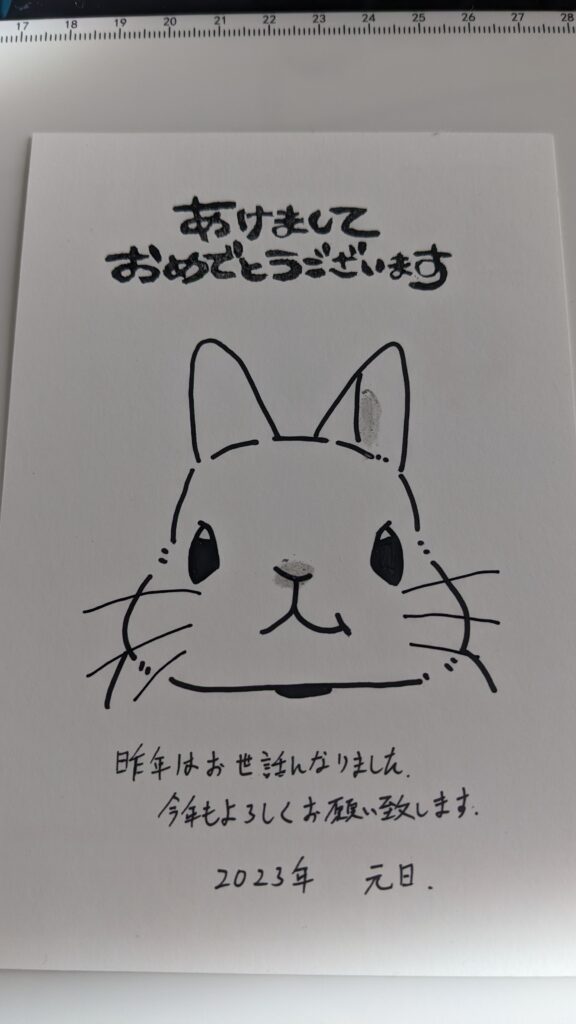 17 18 19 20 21 22 23 24 25 26 27 28
あけまして
おめでとうございます
昨年はお世話になりました.
今年もよろしくお願い致します.
2023年 元日.